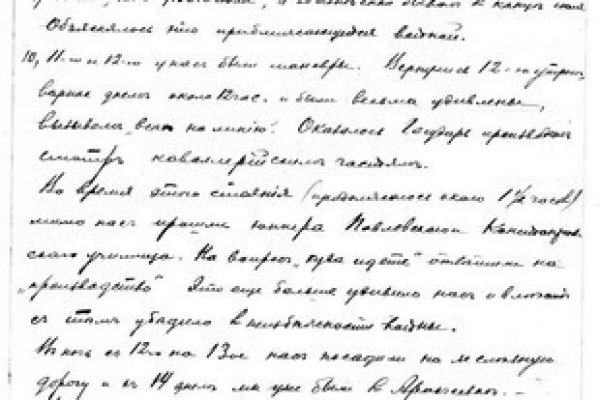 Объяснялось это приближающейся войной.
10, 11-го и 12-го у нас были маневры. Вернулись 12-го утром,
вернее днем около 12 час. и были весьма удивлены,
вызовом „всех на линию“. Оказалось Государь производит
смотр кавалерийским частям.
Во время этого стояния (продолжалось около 1½ часов)
мимо нас прошли юнкера Павловского
училища. На вопрос „куда идете“ ответили на
„производство“ Это еще больше удивило нас и
с тем убедило в неизбежности войны.
В ночь с 12-го на 13-ое нас посадили на железную
дорогу и в 14 днем мы уже были в